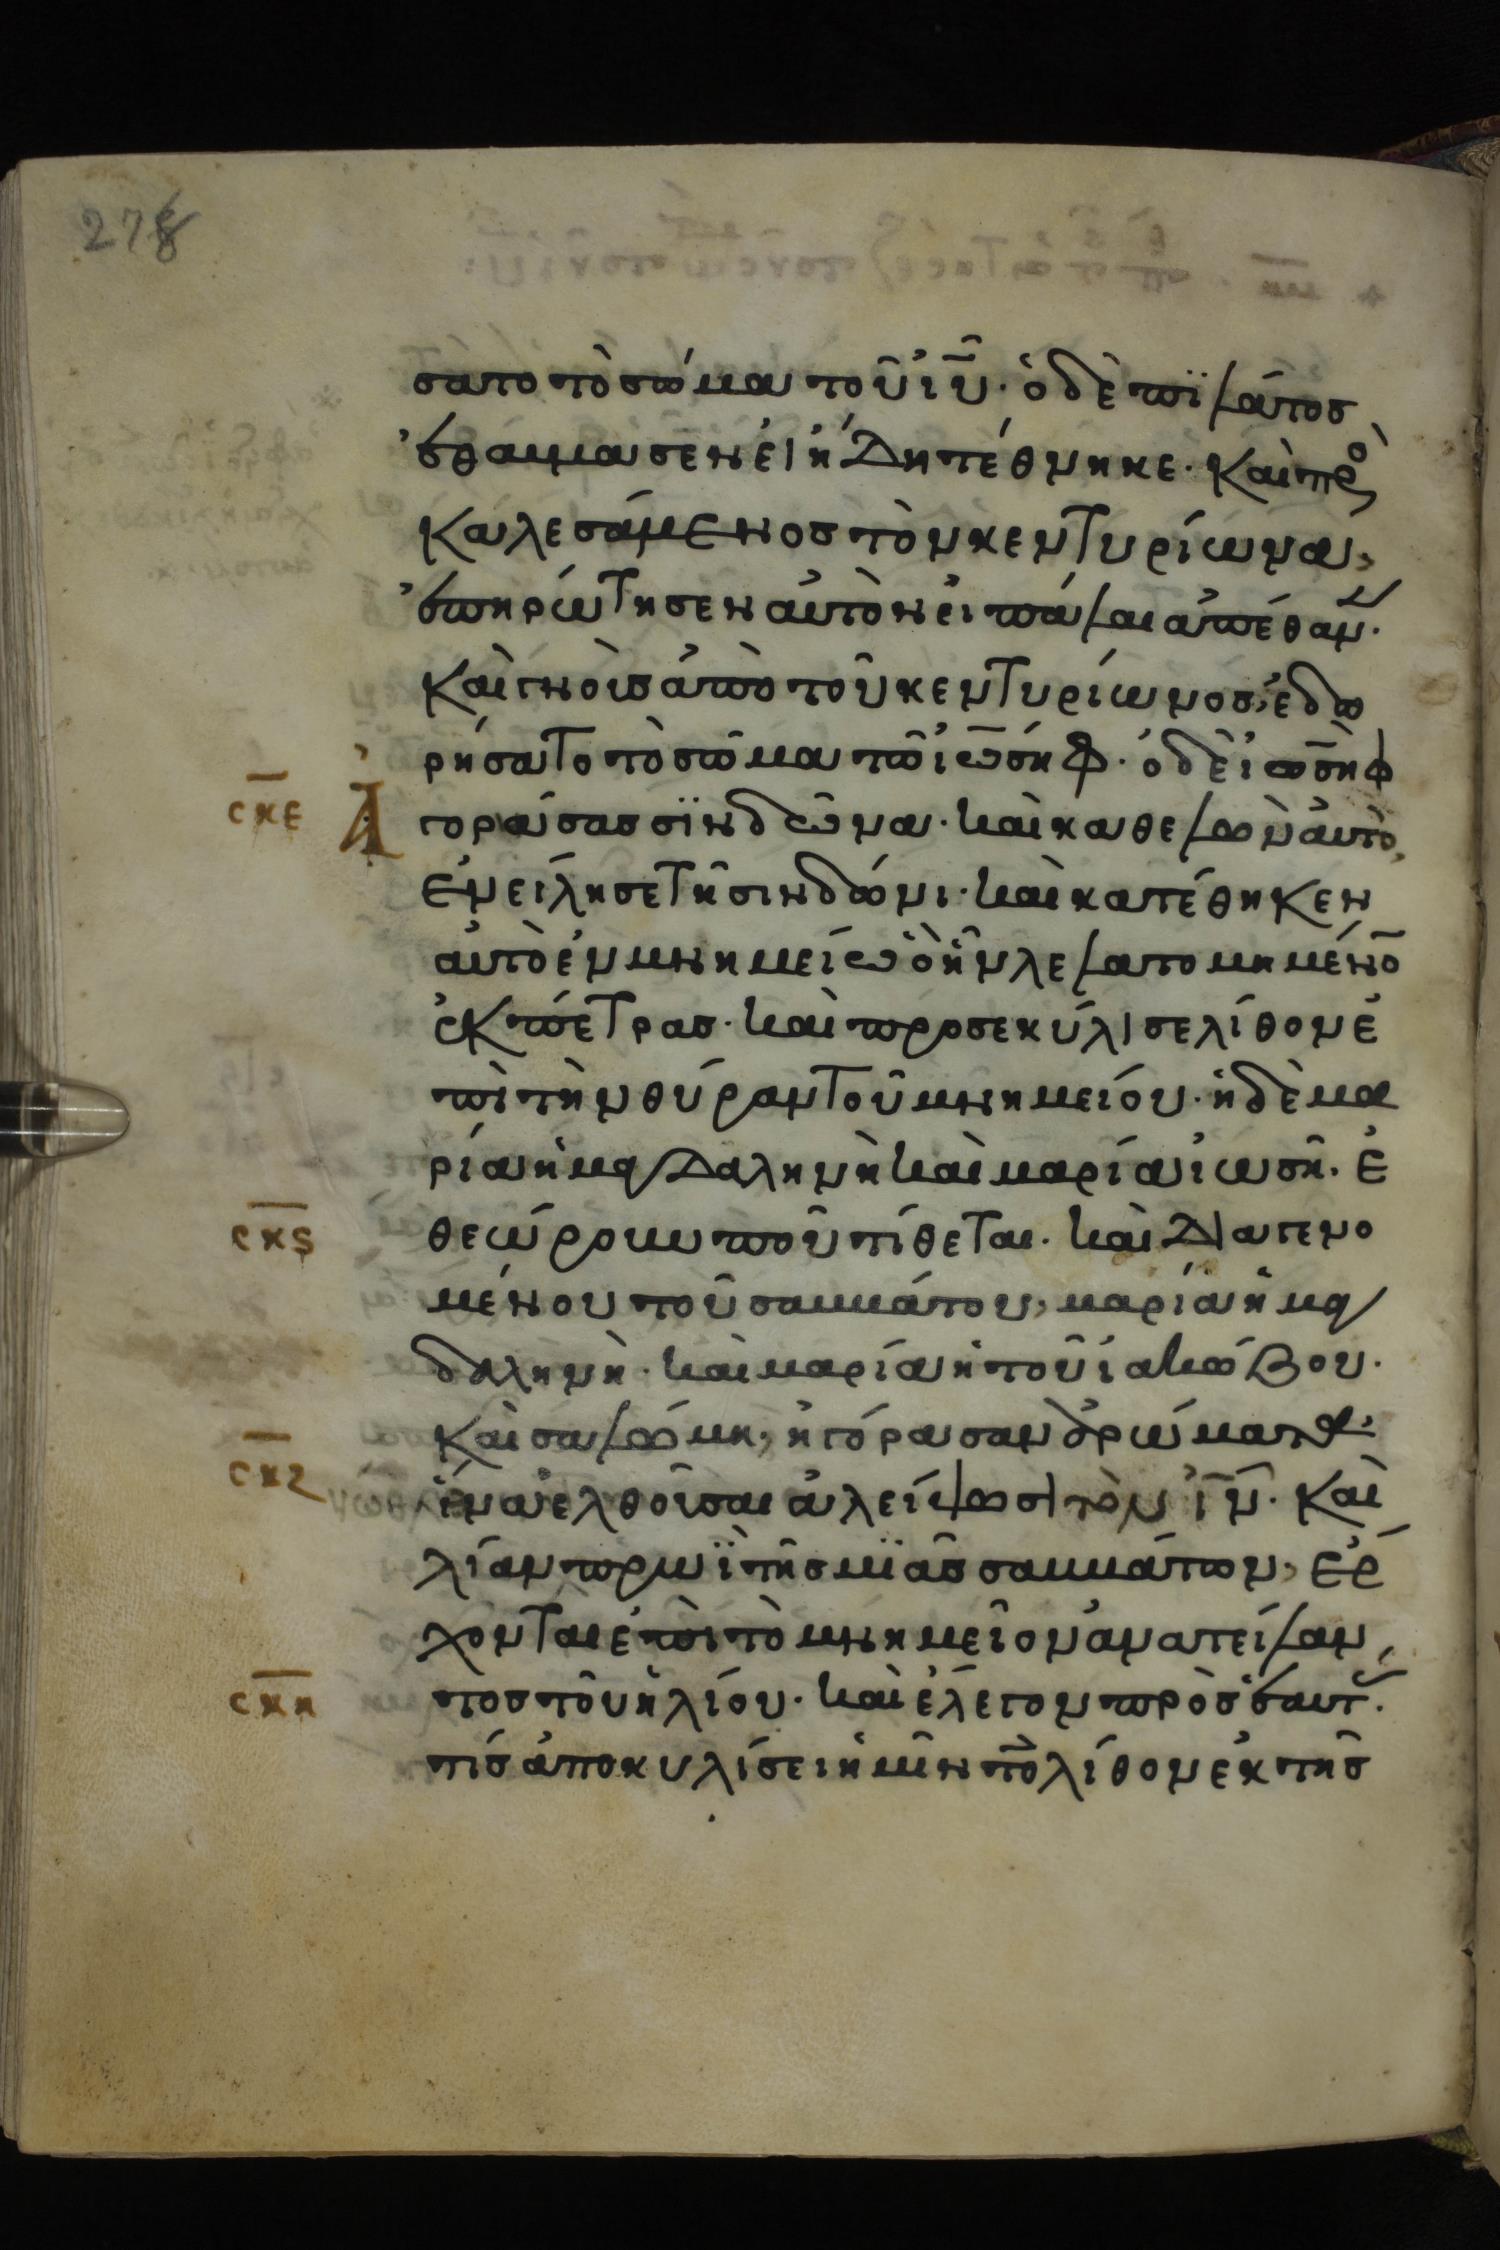 278
σατο τὸ σώμα τοῦ ἰῦ· ὁ δὲ πϊλάτος
ἐθαύμασεν εἰ ἤδη τέθνηκε· Καὶ προ
καλεσάμενος τὸν κεντυρίωνα,
ἐπηρώτησεν αὐτὸν εἰ πάλαι ἀπέθαν·
Καὶ γνοὺς ἀπὸ τοῦ κεντυρίωνος, ἐδω
ρήσατο τὸ σῶμα τῶ ἰωσήφ· ὁ δὲ ἰωσὴφ
σκε Ἀ γοράσας σϊνδῶνα· καὶ καθελὼν αὐτὸ,
ἐνείλησε τῆ σινδόνι· καὶ κατέθηκεν
αὐτὸ ἐν μνημείω ὃ ἦν λελατομημένο
ἐκ πέτρας· καὶ προσεκύλισε λίθον ἐ
πὶ τὴν θύραν τοῦ μνημείου· ἡ δὲ μα
ρία ἡ μαγδαληνὴ καὶ μαρία ἰωσῆ· ἐ
σκς θεώρουν ποῦ τίθεται· καὶ διαγενο
μένου τοῦ σαββάτου, μαρία ἡ μαγ
δαληνὴ· καὶ μαρία ἡ τοῦ ἰακώβου·
σκζ Καὶ σαλώμη, ἠγόρασαν ἀρώματα·
ἵνα ἐλθοῦσαι ἀλείψωσι τὸν ἰν· Καὶ
λίαν πρωῒ τῆς μϊᾶς σαββάτων, ἔρ
χονται ἐπὶ τὸ μνημεῖον ἀνατείλαν
σκη τος τοῦ ἡλίου· καὶ ἔλεγον πρὸς ἑαυτ·
τίς ἀποκυλίσει ἡμῖν τὸ λίθον ἐκ τῆς